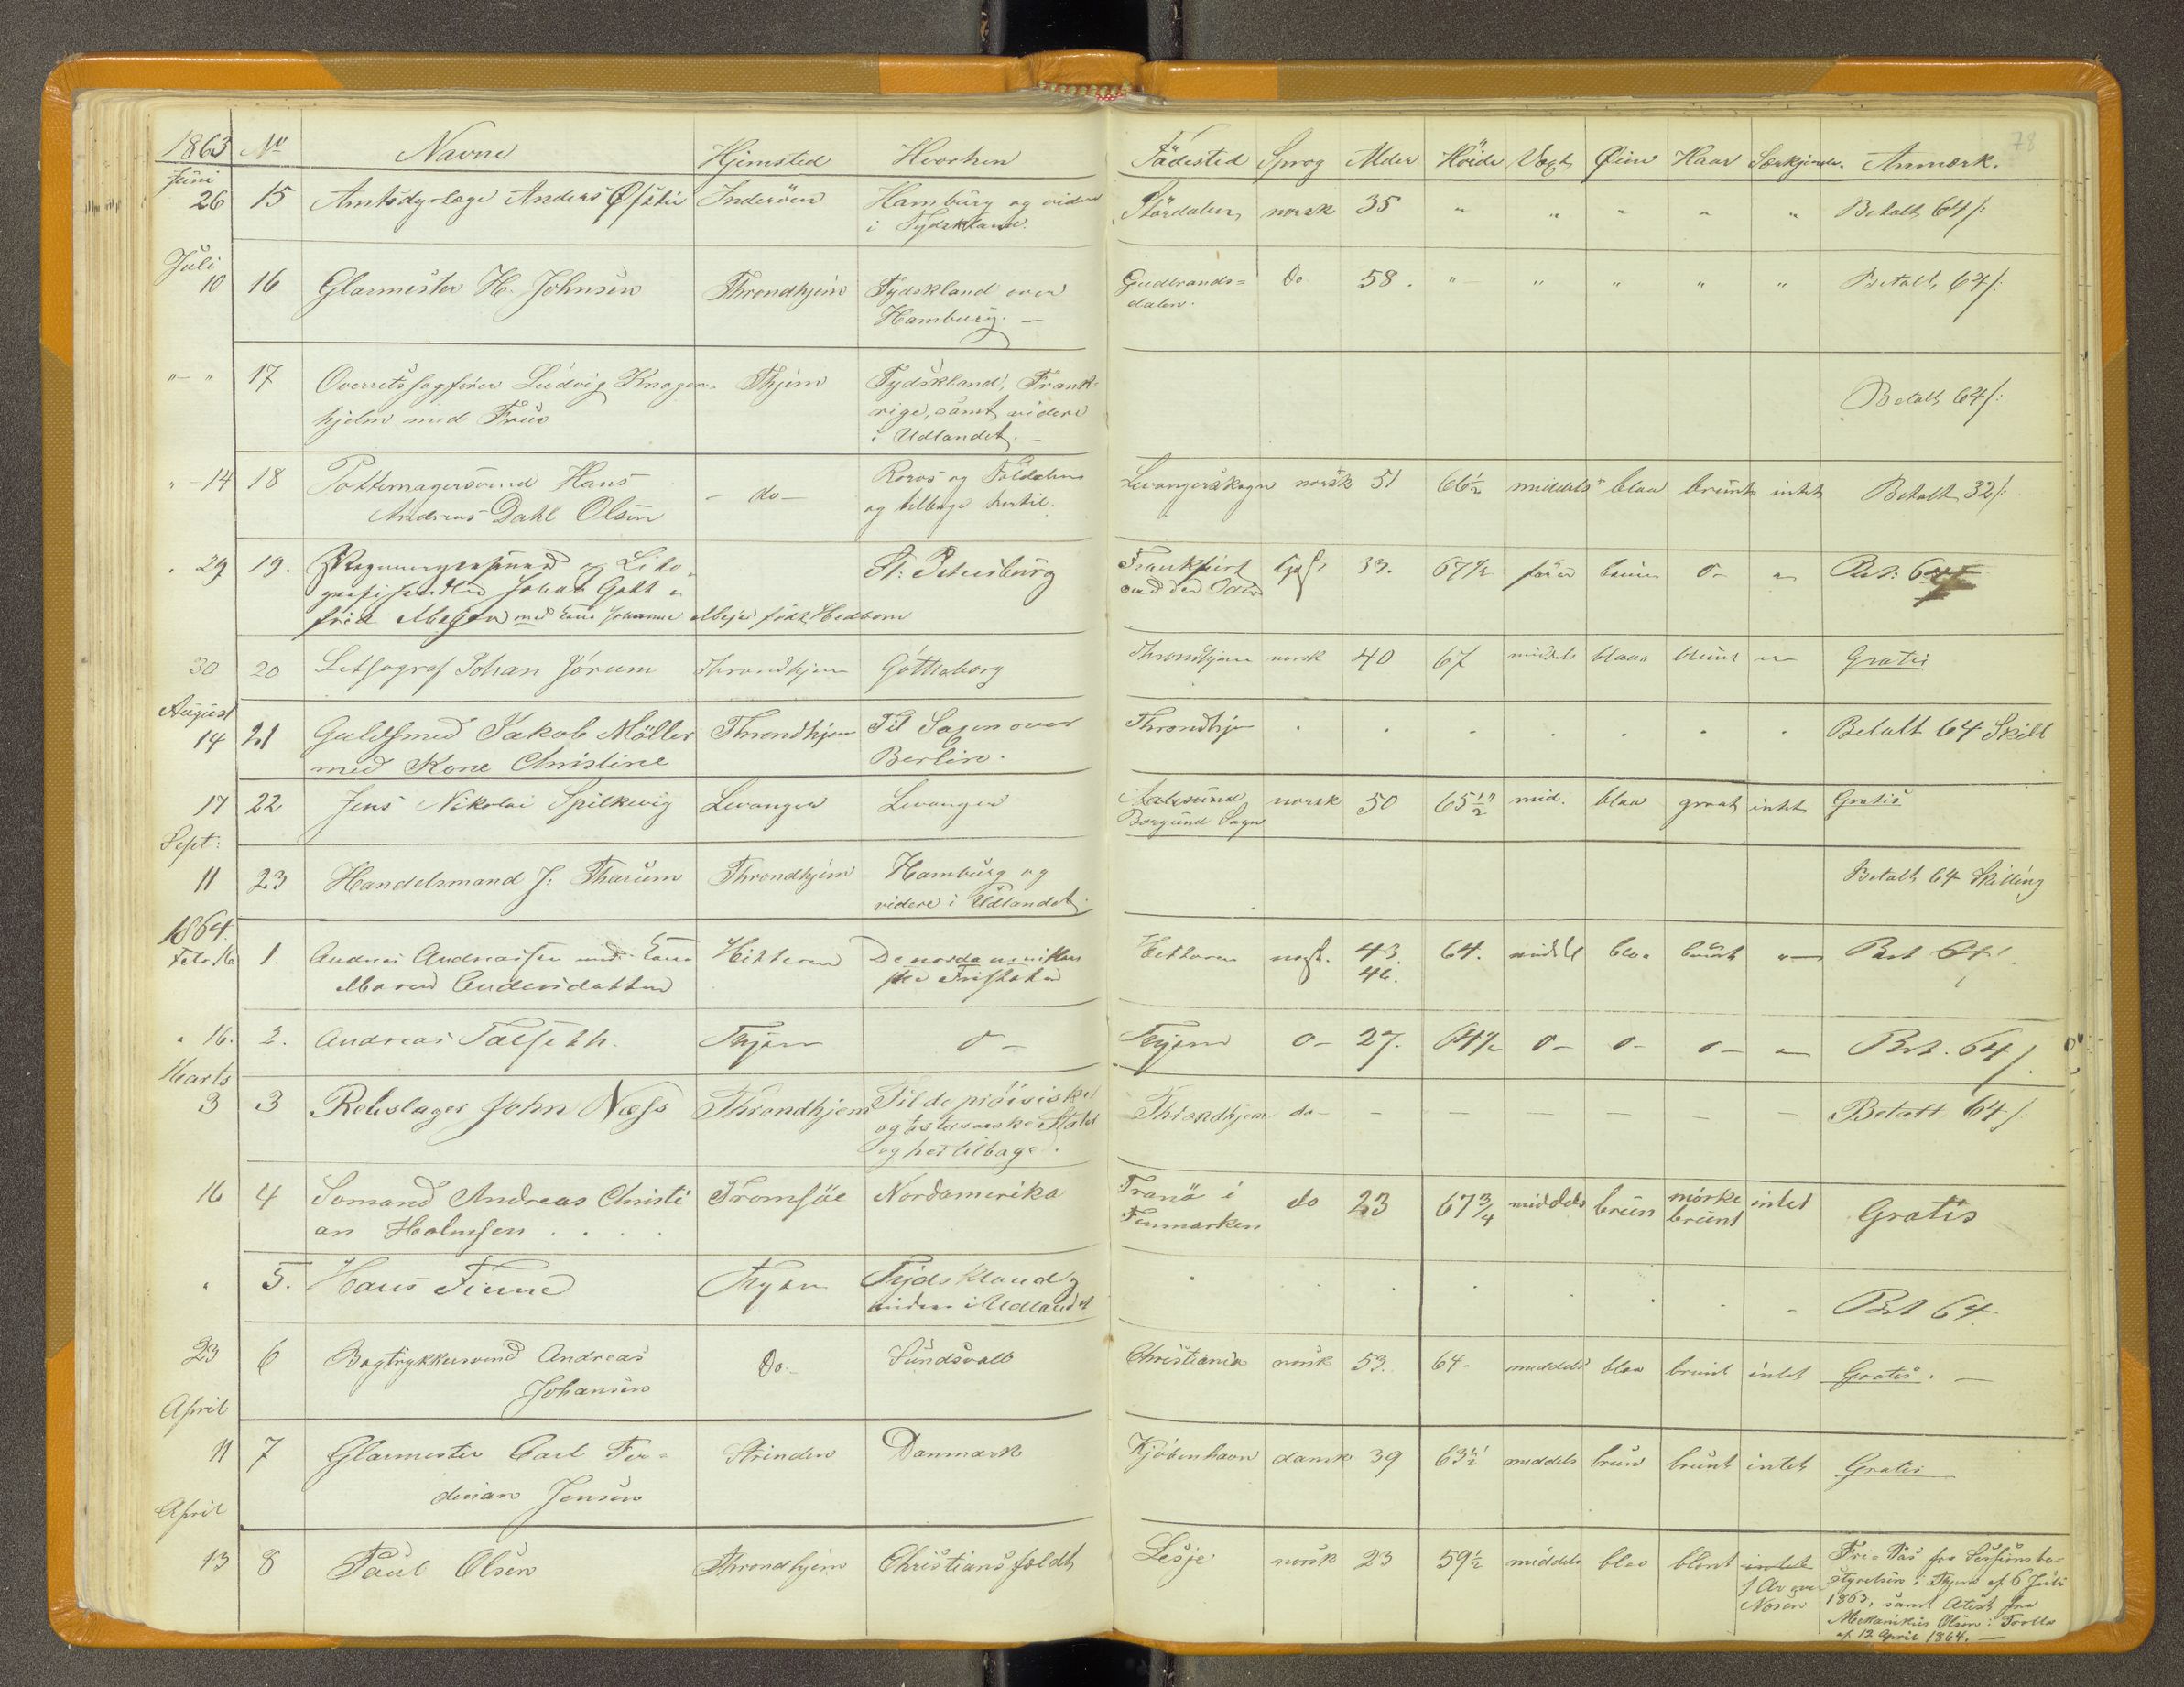 78
1863 No Navne Hjemsted Hvorhen Födested Sprog Alder Höide Vext Øine Haar Særkjende. Anmærk.
Juni
26 15 Amtsdyrlæge Anders Øfstie Inderöen Hamburg og videre Stördalen norsk 35 " " " " " Betalt 64 /:
i Tydskland.
Juli
10 16 Glarmester H. Johnsen Throndhjem Tydskland over Gudbrands= Do 58. " " " " " Betalt, 64 /:
Hamburg. — dalen.
" — " 17 Overretssagförer Ludvig Knagen= Thjem Tydskland, Frank= Betalt 64 /:
hjelm med Frue rige, samt videre
i Udlandet. —
" — 14 18 Pottemagersvend Hans — do — Röros og Foldalen Levangerskogn norsk 51 66½ middels blaa brunt intet Betalt 32 /:
Andreas Dahl Olsen og tilbage hertil.
" 29 19. og Lito= St: Petersburg Frankfurt 33. 67½ brune o— " Bet: 64
Johan Gott= ved den Oder
fried Meyer med Kone Johanne Meyer födt Hedborn
30 20 Lithograf Johan Jörum Throndhjem Göttaborg Throndhjem norsk 40 67 middels blaaa brunt " — Gratis
August
14 21 Guldsmed Jakob Möller Throndhjem Til Saxen over Throndhjem . . . . . . . Betalt 64 Skill
med Kone Christine Berlin.
17 22 Jens Nikolai Spilkevig Levanger Levanger Aalesund norsk 50 65½" mid. blaa graat intet Gratis
Borgund Sogn
Sept:
11 23 Handelsmand J: Tharum Throndhjem Hamburg og Betalt 64 Skilling
videre i Udlandet.
1864.
1. Andreas Andreassen med Kone Hitteren De nordamerikan Hitteren norsk. 43. 64. middel blaa brunt " — Bet 64 /.
Maren Andersdatter ske Fristater 46.
" 16. 2. Andreas Thjem o — Thjem o — 27. 64½ o — o — o — " — Bet. 64 /.
Marts
3 3 Rebslager John Næss Throndhjem Til de pröisiske Throndhjem do — — — — — — — Betalt 64 /:
og östersrske Stater
og her tilbage.
16 4 Somand Andreas Christi Tromsöe Nordamerika Tranö i do 23 67¾ middels brun mörke intet Gratis
an Holmsen . . . . Finmarken brunt
" 5. Hans Finne Thjem Tydskland og . . . . . . . — Bet 64.
videre i Udlandet
23 6 Bogtrykkersvend Andreas Do — Sundsvall Christiania norsk 53. 64 — middels blaa brunt intet Gratis. —
Johansen
April
11 7 Glarmester Carl Fer= Strinden Danmark Kjöbenhavn dansk 39 63½" middels brun brunt intet Gratis
dinian Jensen
April
13 8 Paul Olsen Throndhjem Christiansfeldt Lesje norsk 23 59½ middels blaa blont intet Fri=Pas fra Sessionsbe=
1 Ar over styrelsen i Thjem af 6 Juli
Nosen 1863, samt Atest fra
Mekanikus Olsen i Trolla
af 12 April 1864. —